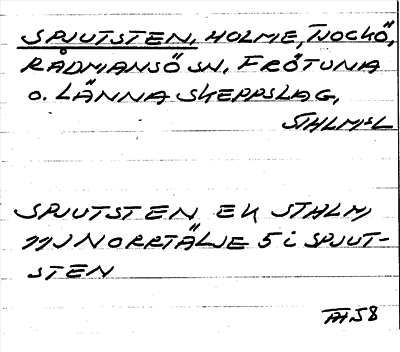 SPJUTSTEN, HOLME, TJOCKÖ,
RÅDMANSÖ SN, FRÖTUNA
O. LÄNNA SKEPPSLAG,
STHLMSL
SPJUTSTEN EK STHLM,
111 J NORRTÄLJE 5 i SPJUT-
STEN
58